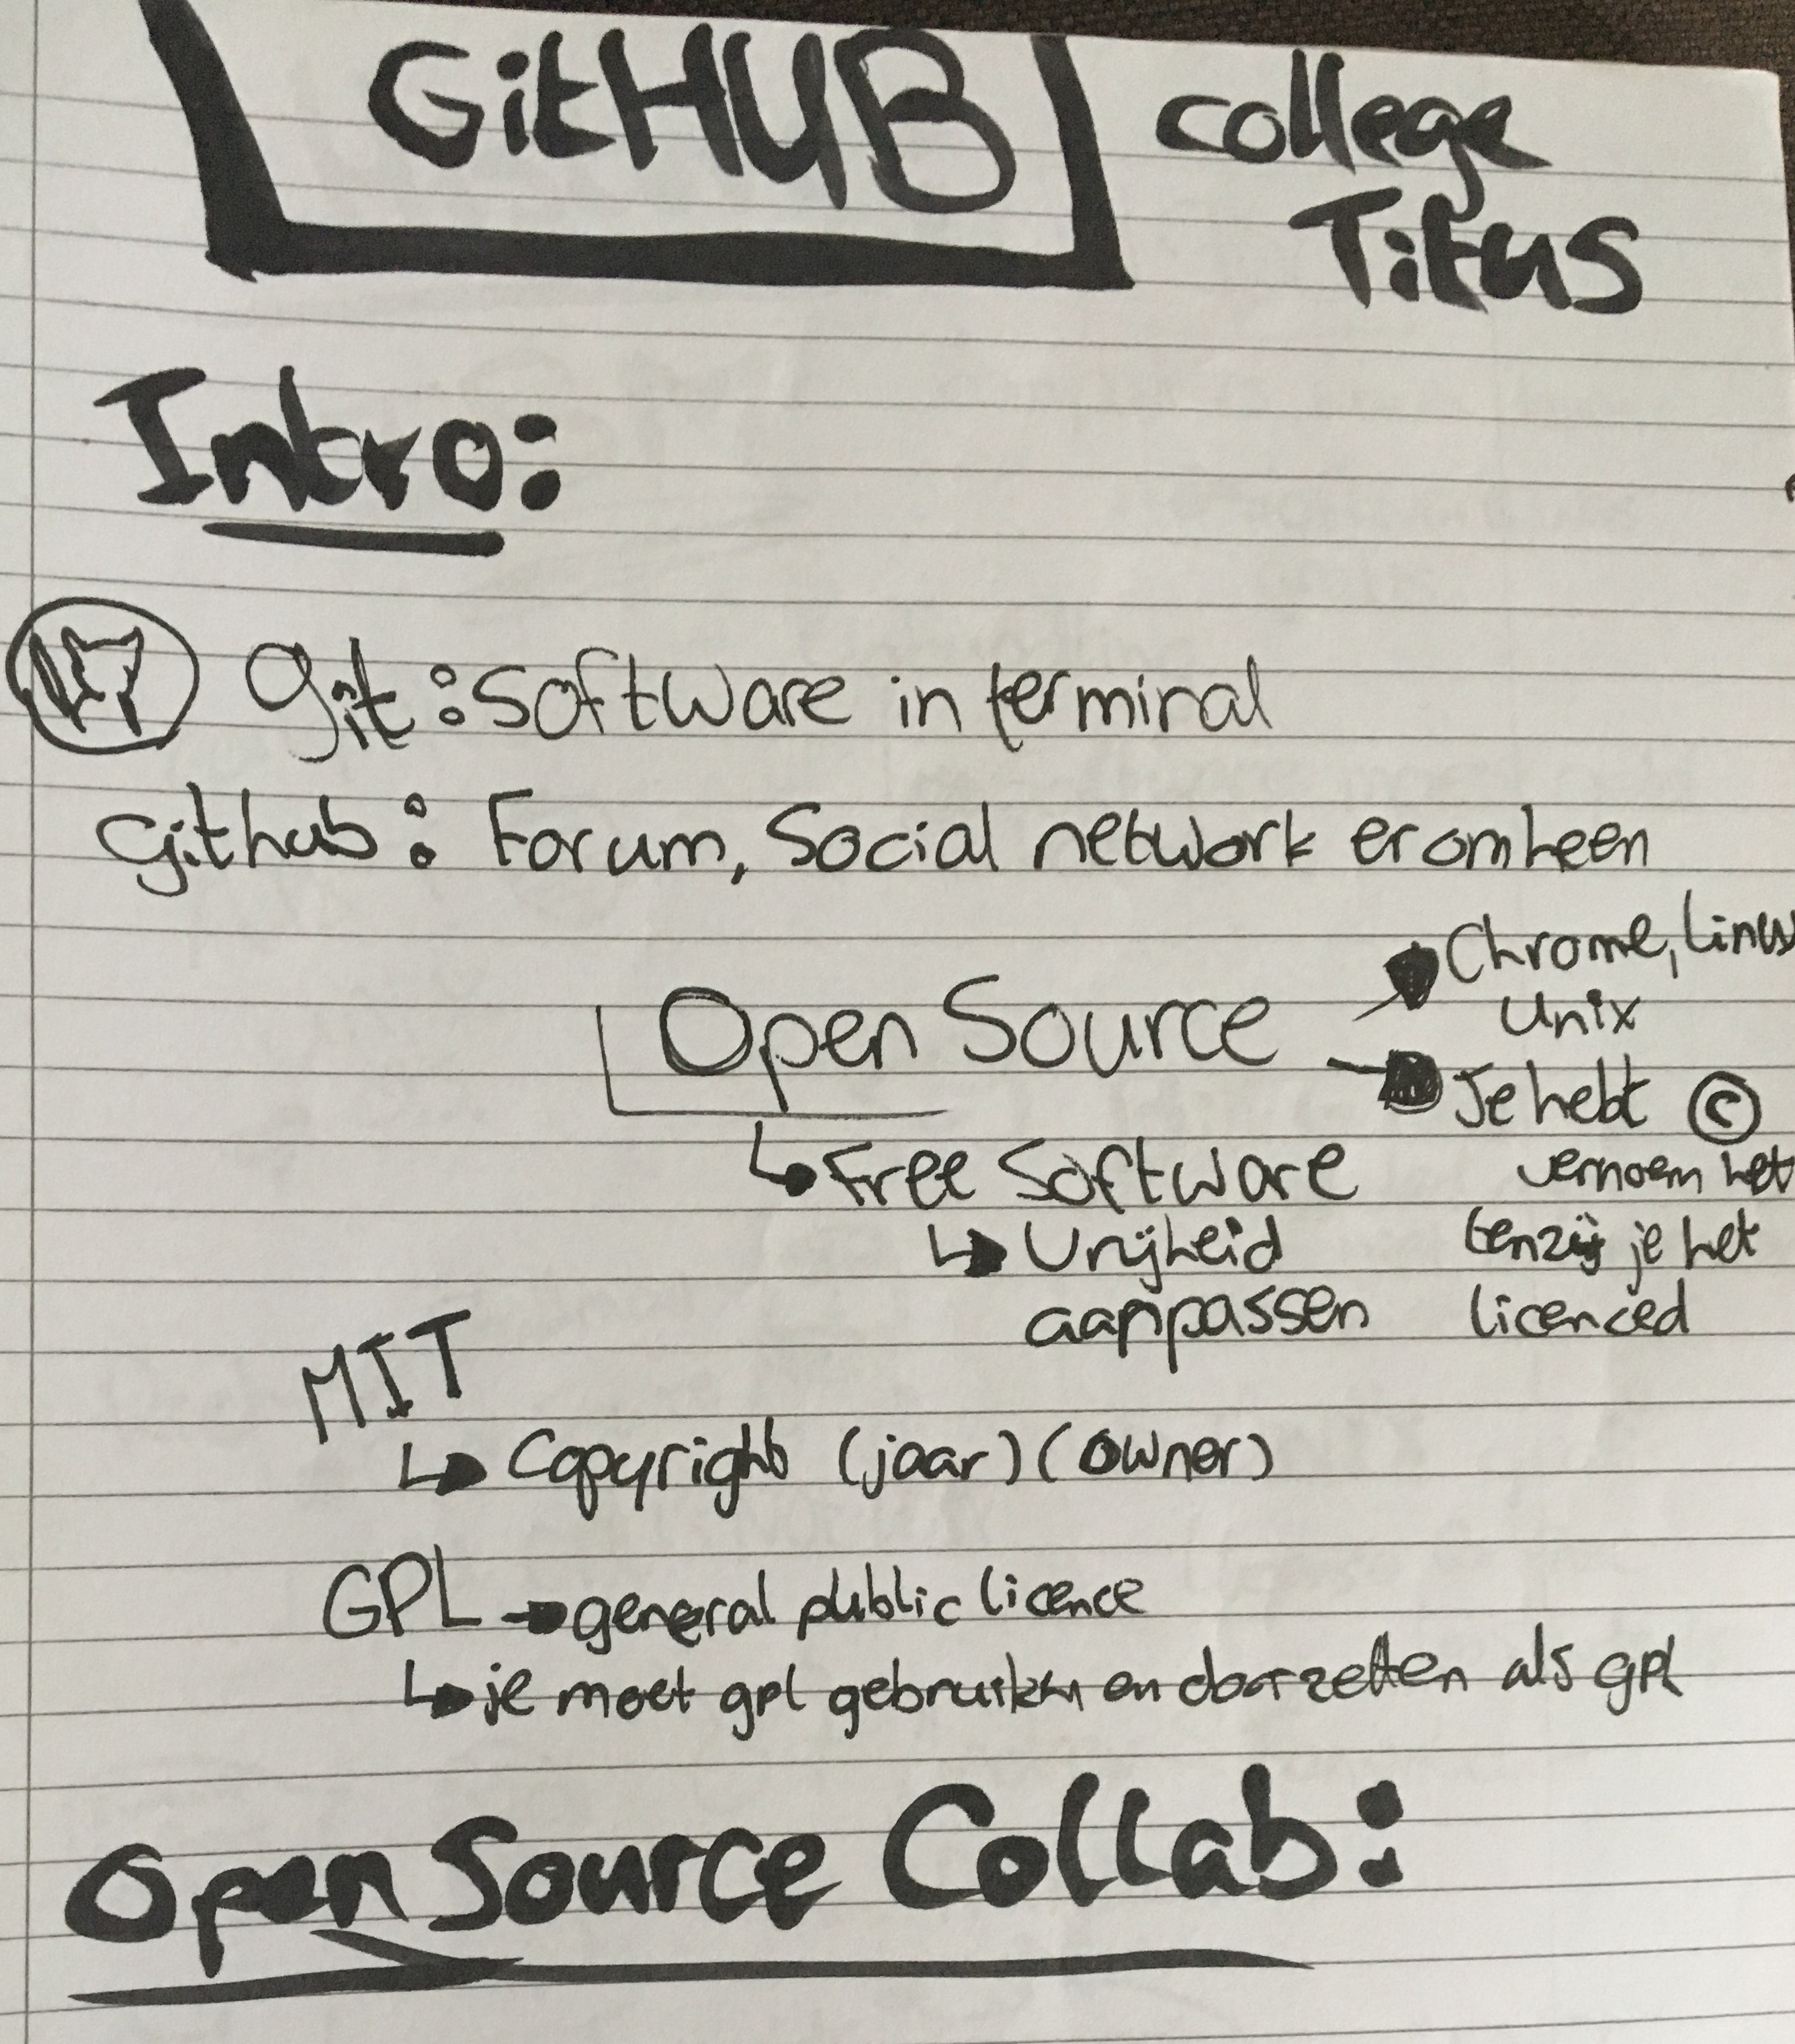 GitHUB
college
Titus
Intro:
git: software in terminal
github: Forum, Social network eromheen
Open Source
Chrome, Linux
Unix
Je hebt ©
vernoem het
tenzij je het
licenced
Free Software
Vrijheid
aanpassen
MIT
Copyright (jaar) (owner)
GPL general public licence
je moet gpl gebruiken en doorzetten als gpl
Open Source Collab: